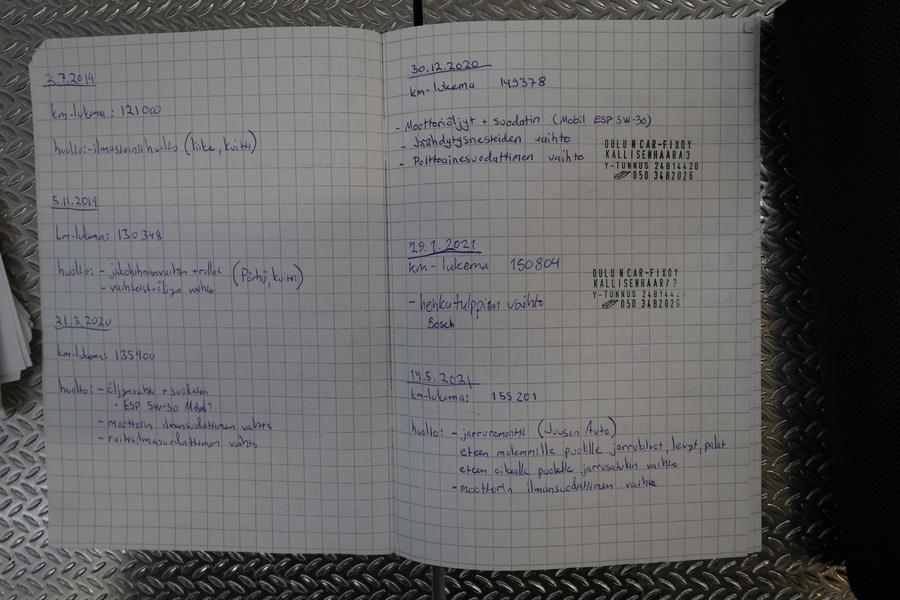 3.7.2019
km-lukema: 121000
huolto: -ilmastointihuolto (liike, kuitti)
5.11.2019
km-lukema: 130348
huolto: - jakohihnanvaihto + rullat (Pörhö, kuitti)
- vaihteistoöljyn vaihto
21.3.2020
km-lukema: 135400
huolto: - öljynvaihto + suodatin
• ESP 5W-30 Mobil1
- moottorin ilmansuodattimen vaihto
- raitisilmasuodattimen vaihto
30.12.2020
km-lukema 149378
- Moottoriöljyt + suodatin (Mobil ESP 5W-30)
- Jäähdytysnesteiden vaihto
- Polttoainesuodattimen vaihto
OULUN CAR-FIX OY
KALLISENHAARA 3
Y-TUNNUS 24814420
050 3482026
29.1.2021
km-lukema 150804
- hehkutulppien vaihto
Bosch
OULUN CAR-FIX OY
KALLISENHAARA 3
Y-TUNNUS 248144
050 3482026
14.5.2021
km-lukema: 155 201
huolto: - jarruremontti (Juuson Auto)
eteen molemmille puolille jarrukilvet, levyt, palat
eteen oikealle puolelle jarrusatulan vaihto
- moottorin ilmansuodattimen vaihto